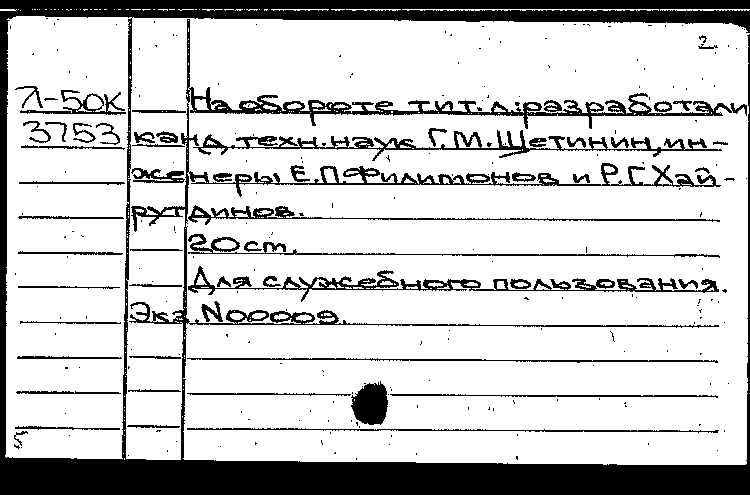 2.
Л-50К На обороте тит.л.:разработали
3753 канд.техн.наук Г.М.Щетинин,ин-
женеры Е.П.Филимонов и Р.Г.Хай-
рутдинов.
20 cm.
Для служебного пользования.
Экз.N00009.
5